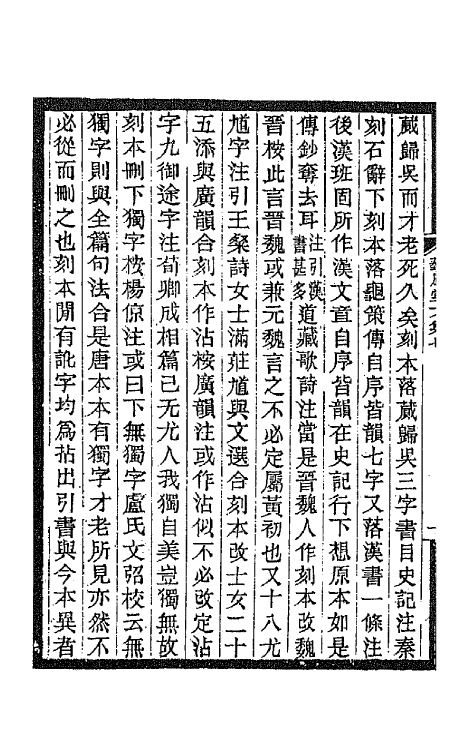 蕆歸吳而才老死久矣刻本落蕆歸吳三字書目史記注秦
刻石辭下刻本落龜策傳自序皆韻七字又落漢書一條注
後漢班固所作漢文章自序皆韻在史記行下想原本如是
傳鈔奪去耳注引漢書甚多道藏歌詩注當是晉魏人作刻本改魏
晉桉此言晉魏或兼元魏言之不必定屬黃初也又十八尤
馗字注引王粲詩女士滿莊馗與文選合刻本改士女二十
五添與廣韻合刻本作沾桉廣韻注或作沾似不必改定沾
字九御途字注荀卿成相篇已无尤人我獨自美豈獨無故
刻本刪下獨字桉楊倞注或曰下無獨字盧氏文弨校云無
獨字則與全篇句法合是唐本本有獨字才老所見亦然不
必從而刪之也刻本閒有訛字均為拈出引書與今本異者